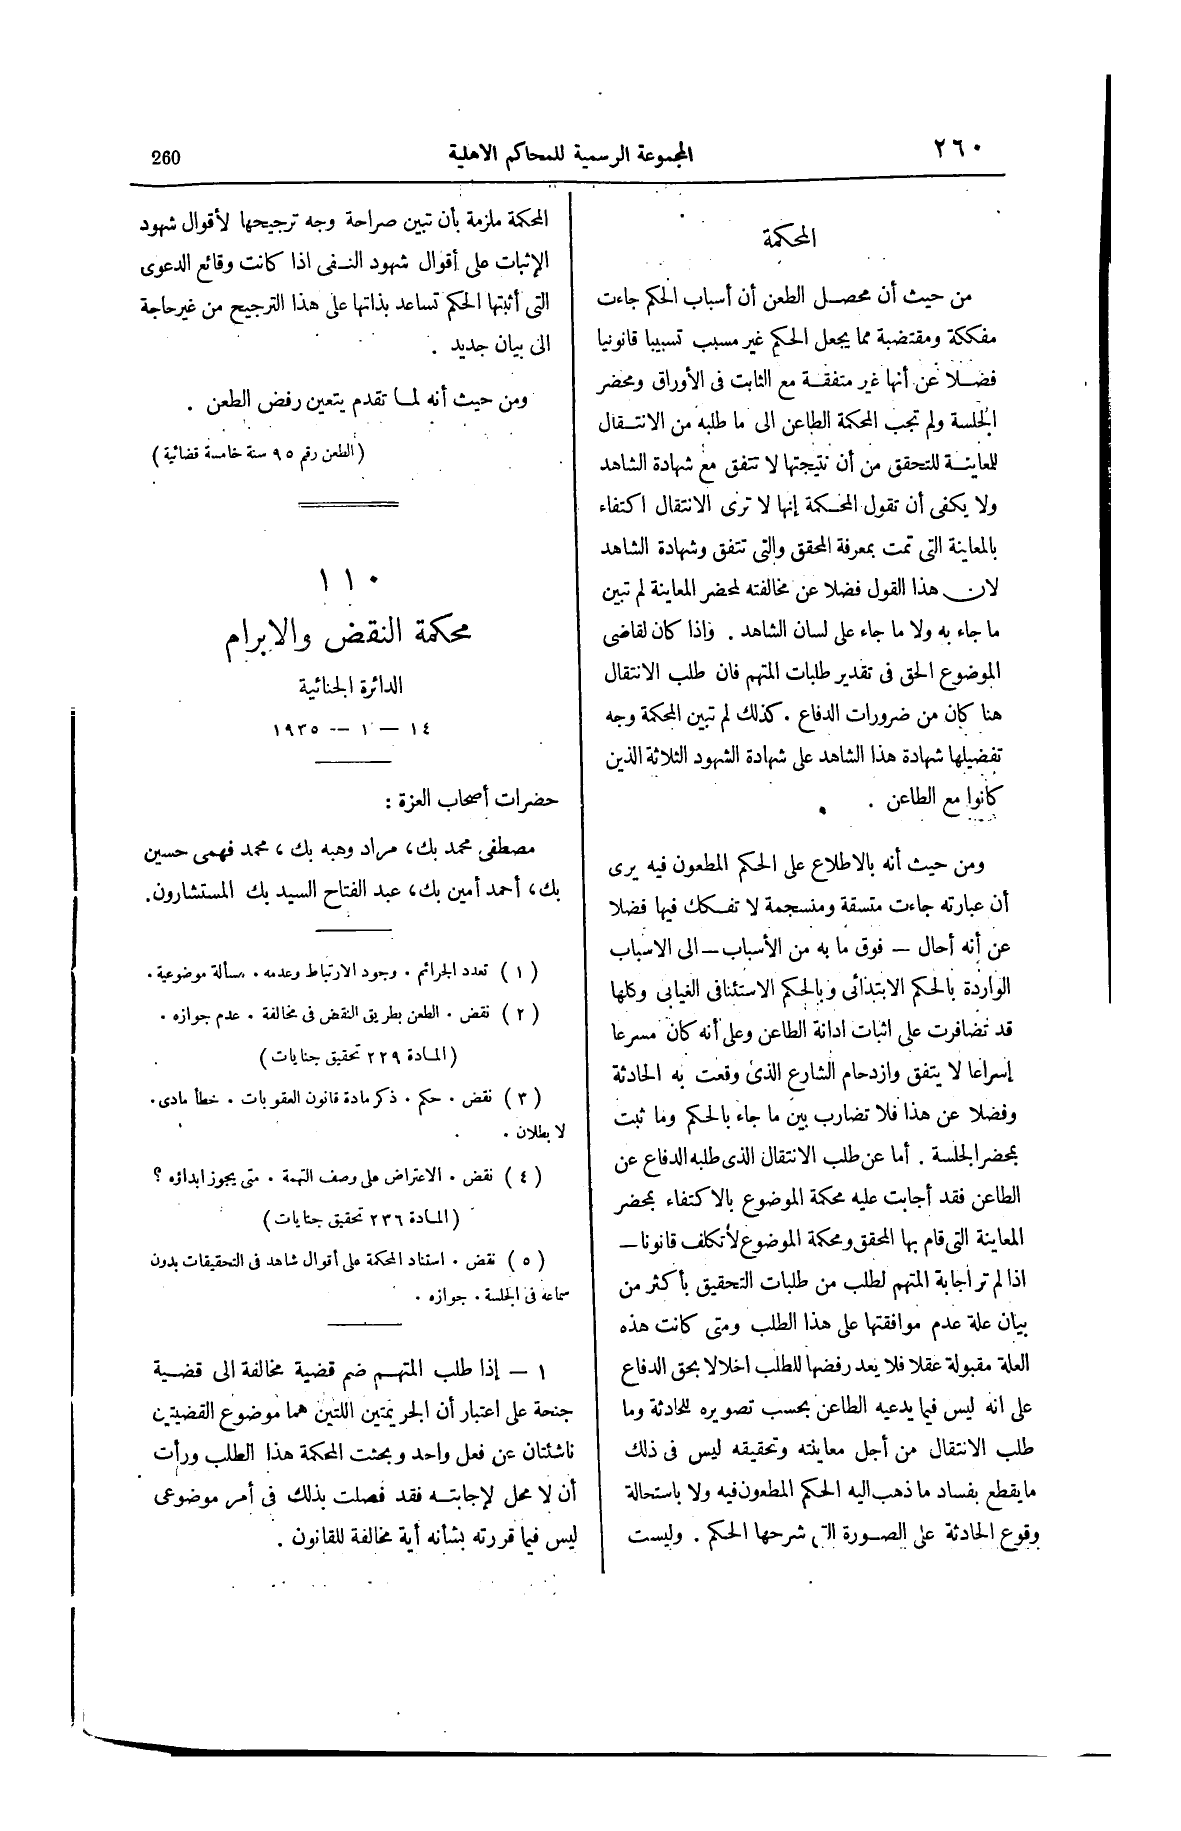 ٢٦٠
المجموعة الرسمية للمحاكم الاهلية
260
المحكمة
من حيث أن محصل الطعن أن أسباب الحكم جاءت
مفككة ومقتضبة مما يجعل الحكم غير مسبب تسبيبا قانونيا
فضلا عن أنها غير متفقة مع الثابت فى الأوراق ومحضر
الجلسة ولم تجب المحكمة الطاعن الى ما طلبه من الانتقال
للمعاينة للتحقق من أن نتيجتها لا تتفق مع شهادة الشاهد
ولا يكفى أن تقول المحكمة إنها لا ترى الانتقال اكتفاء
بالمعاينة التى تمت بمعرفة المحقق والتى تتفق وشهادة الشاهد
لان هذا القول فضلا عن مخالفته لمحضر المعاينة لم تبين
ما جاء به ولا ما جاء على لسان الشاهد . وإذا كان لقاضى
الموضوع الحق فى تقدير طلبات المتهم فان طلب الانتقال
هنا كان من ضرورات الدفاع . كذلك لم تبين المحكمة وجه
تفضيلها شهادة هذا الشاهد على شهادة الشهود الثلاثة الذين
كانوا مع الطاعن .
ومن حيث أنه بالاطلاع على الحكم المطعون فيه يرى
أن عبارته جاءت متسقة ومنسجمة لا تفكك فيها فضلا
عن أنه أحال — فوق ما به من الأسباب — الى الاسباب
الواردة بالحكم الابتدائى وبالحكم الاستئنافى الغيابى وكلها
قد تضافرت على اثبات ادانة الطاعن وعلى أنه كان مسرعا
إسراعا لا يتفق وازدحام الشارع الذى وقعت به الحادثة
وفضلا عن هذا فلا تضارب بين ما جاء بالحكم وما ثبت
بمحضر الجلسة . أما عن طلب الانتقال الذى طلبه الدفاع عن
الطاعن فقد أجابت عليه محكمة الموضوع بالاكتفاء بمحضر
المعاينة التى قام بها المحقق ومحكمة الموضوع لا تكلف قانونا —
اذا لم تر اجابة المتهم لطلب من طلبات التحقيق بأكثر من
بيان علة عدم موافقتها على هذا الطلب ومتى كانت هذه
العلة مقبولة عقلا فلا يعد رفضها للطلب اخلالا بحق الدفاع
على انه ليس فيما يدعيه الطاعن بحسب تصويره للحادثة وما
طلب الانتقال من أجل معاينته وتحقيقه ليس فى ذلك
ما يقطع بفساد ما ذهب اليه الحكم المطعون فيه ولا باستحالة
وقوع الحادثة على الصورة التى شرحها الحكم . وليست
المحكمة ملزمة بأن تبين صراحة وجه ترجيحها لأقوال شهود
الإثبات على أقوال شهود النفى اذا كانت وقائع الدعوى
التى أثبتها الحكم تساعد بذاتها على هذا الترجيح من غير حاجة
الى بيان جديد .
ومن حيث أنه لما تقدم يتعين رفض الطعن .
(الطعن رقم ٩٥ سنة خامسة قضائية)
١١٠
محكمة النقض والابرام
الدائرة الجنائية
١٤ — ١ — ١٩٣٥
حضرات أصحاب العزة :
مصطفى محمد بك، مراد وهبه بك، محمد فهمى حسين
بك، أحمد أمين بك، عبد الفتاح السيد بك المستشارون.
(١) تعدد الجرائم . وجود الارتباط وعدمه . مسألة موضوعية .
(٢) نقض . الطعن بطريق النقض فى مخالفة . عدم جوازه .
(المادة ٢٢٩ تحقيق جنايات)
(٣) نقض . حكم . ذكر مادة قانون العقوبات . خطأ مادى .
لا بطلان .
(٤) نقض . الاعتراض على وصف التهمة . متى يجوز ابداؤه ؟
(المادة ٢٣٦ تحقيق جنايات)
(٥) نقض . استناد المحكمة على أقوال شاهد فى التحقيقات بدون
سماعه فى الجلسة . جوازه .
١ — إذا طلب المتهم ضم قضية مخالفة الى قضية
جنحة على اعتبار أن الجريمتين اللتين هما موضوع القضيتين
ناشئتان عن فعل واحد وبحثت المحكمة هذا الطلب ورأت
أن لا محل لإجابته فقد فصلت بذلك فى أمر موضوعى
ليس فيما قررته بشأنه أية مخالفة للقانون .